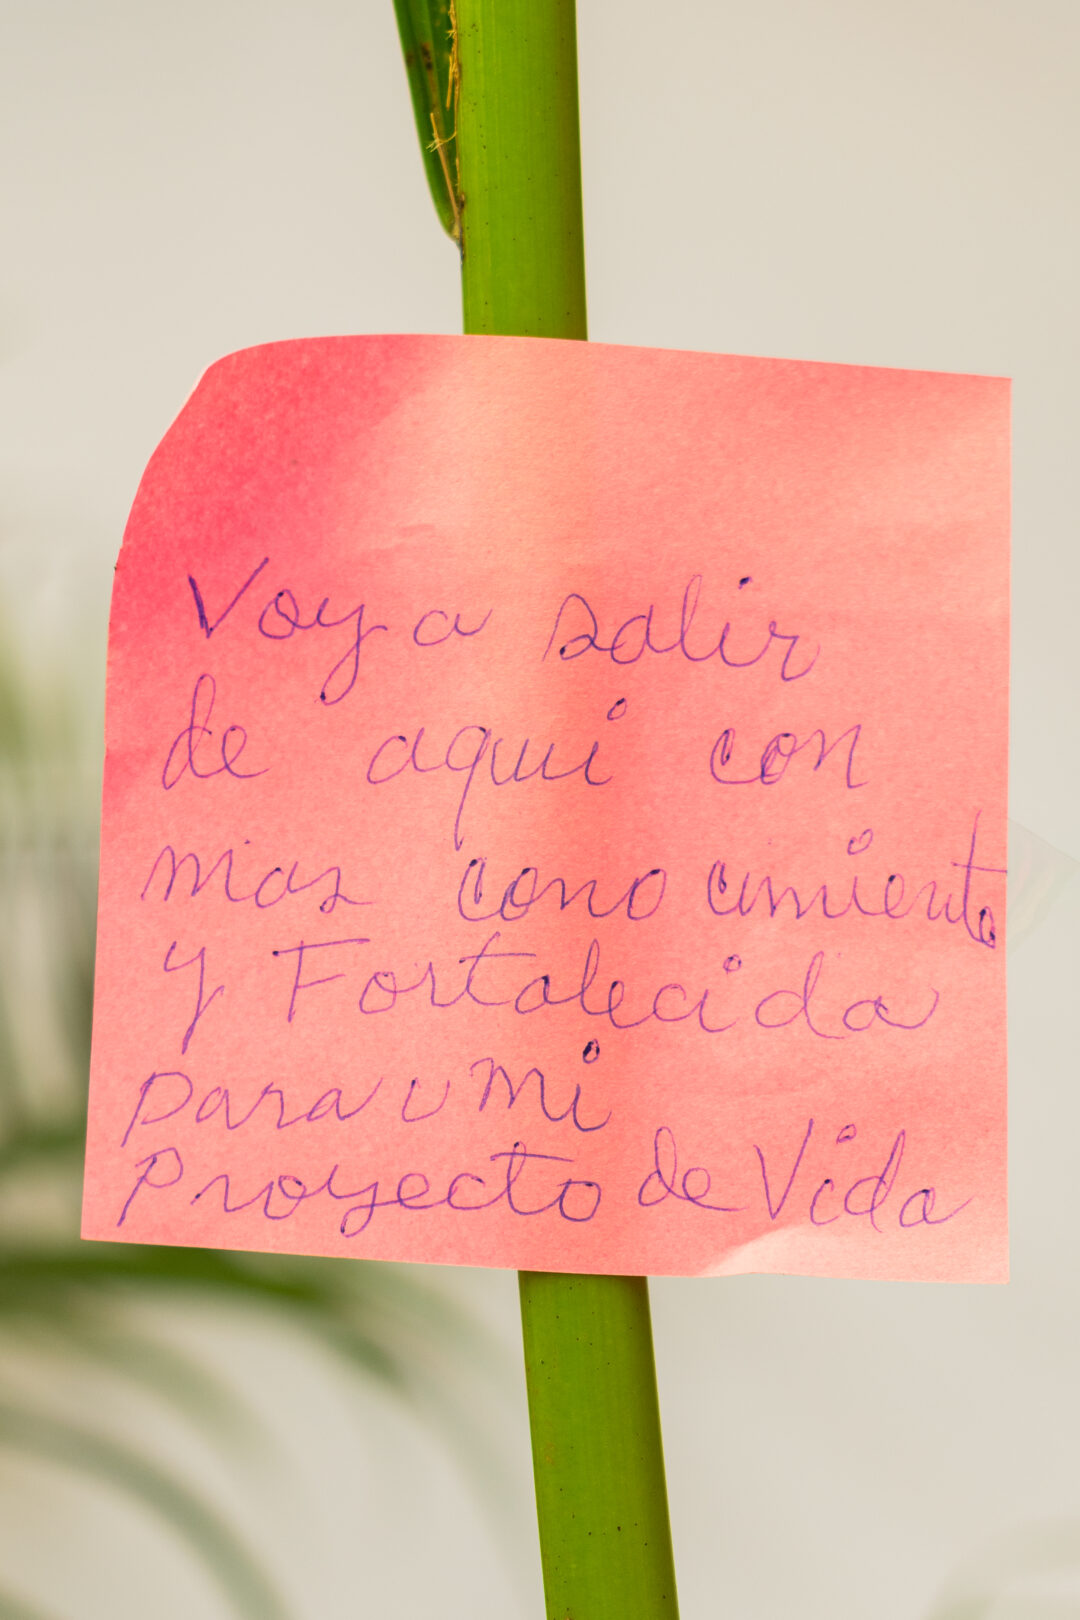 Voy a salir
de aqui con
mas conocimiento
y Fortalecida
para mi
Proyecto de Vida